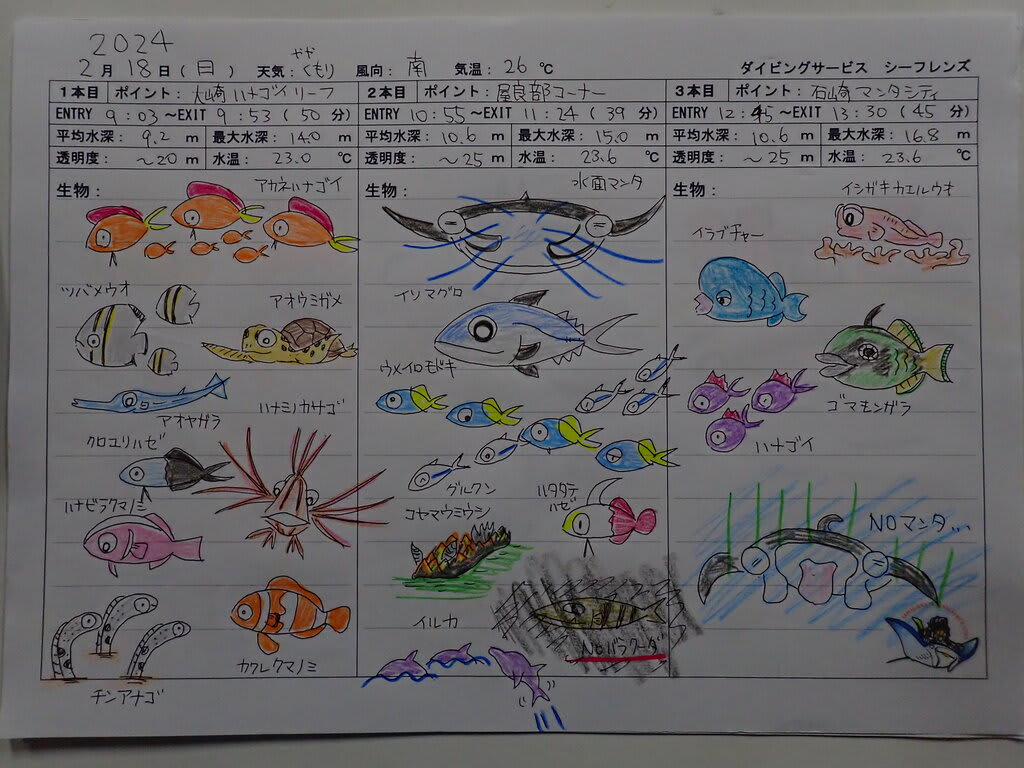 2024
やや
2月 18日(日) 天気:くもり 風向:南 気温:26℃ ダイビングサービス シーフレンズ
1本目 ポイント:大崎ハナゴイリーフ
ENTRY 9:03～EXIT 9:53(50分)
平均水深:9.2m 最大水深:14.0m
透明度:～20m 水温:23.0℃
生物:
アカネハナゴイ
ツバメウオ
アオウミガメ
アオヤガラ
ハナミノカサゴ
クロユリハゼ
ハナビラクマノミ
カクレクマノミ
チンアナゴ
2本目 ポイント:屋良部コーナー
ENTRY 10:55～EXIT 11:24(39分)
平均水深:10.6m 最大水深:15.0m
透明度:～25m 水温:23.6℃
生物:
水面マンタ
イソマグロ
ウメイロモドキ
グルクン
ハタタテ
ハゼ
コヤマウミウシ
イルカ
NOバラクーダ
3本目 ポイント:石崎マンタシティ
ENTRY 12:45～EXIT 13:30(45分)
平均水深:10.6m 最大水深:16.8m
透明度:～25m 水温:23.6℃
生物:
イシガキカエルウオ
イラブチャー
ゴマモンガラ
ハナゴイ
NOマンタ...